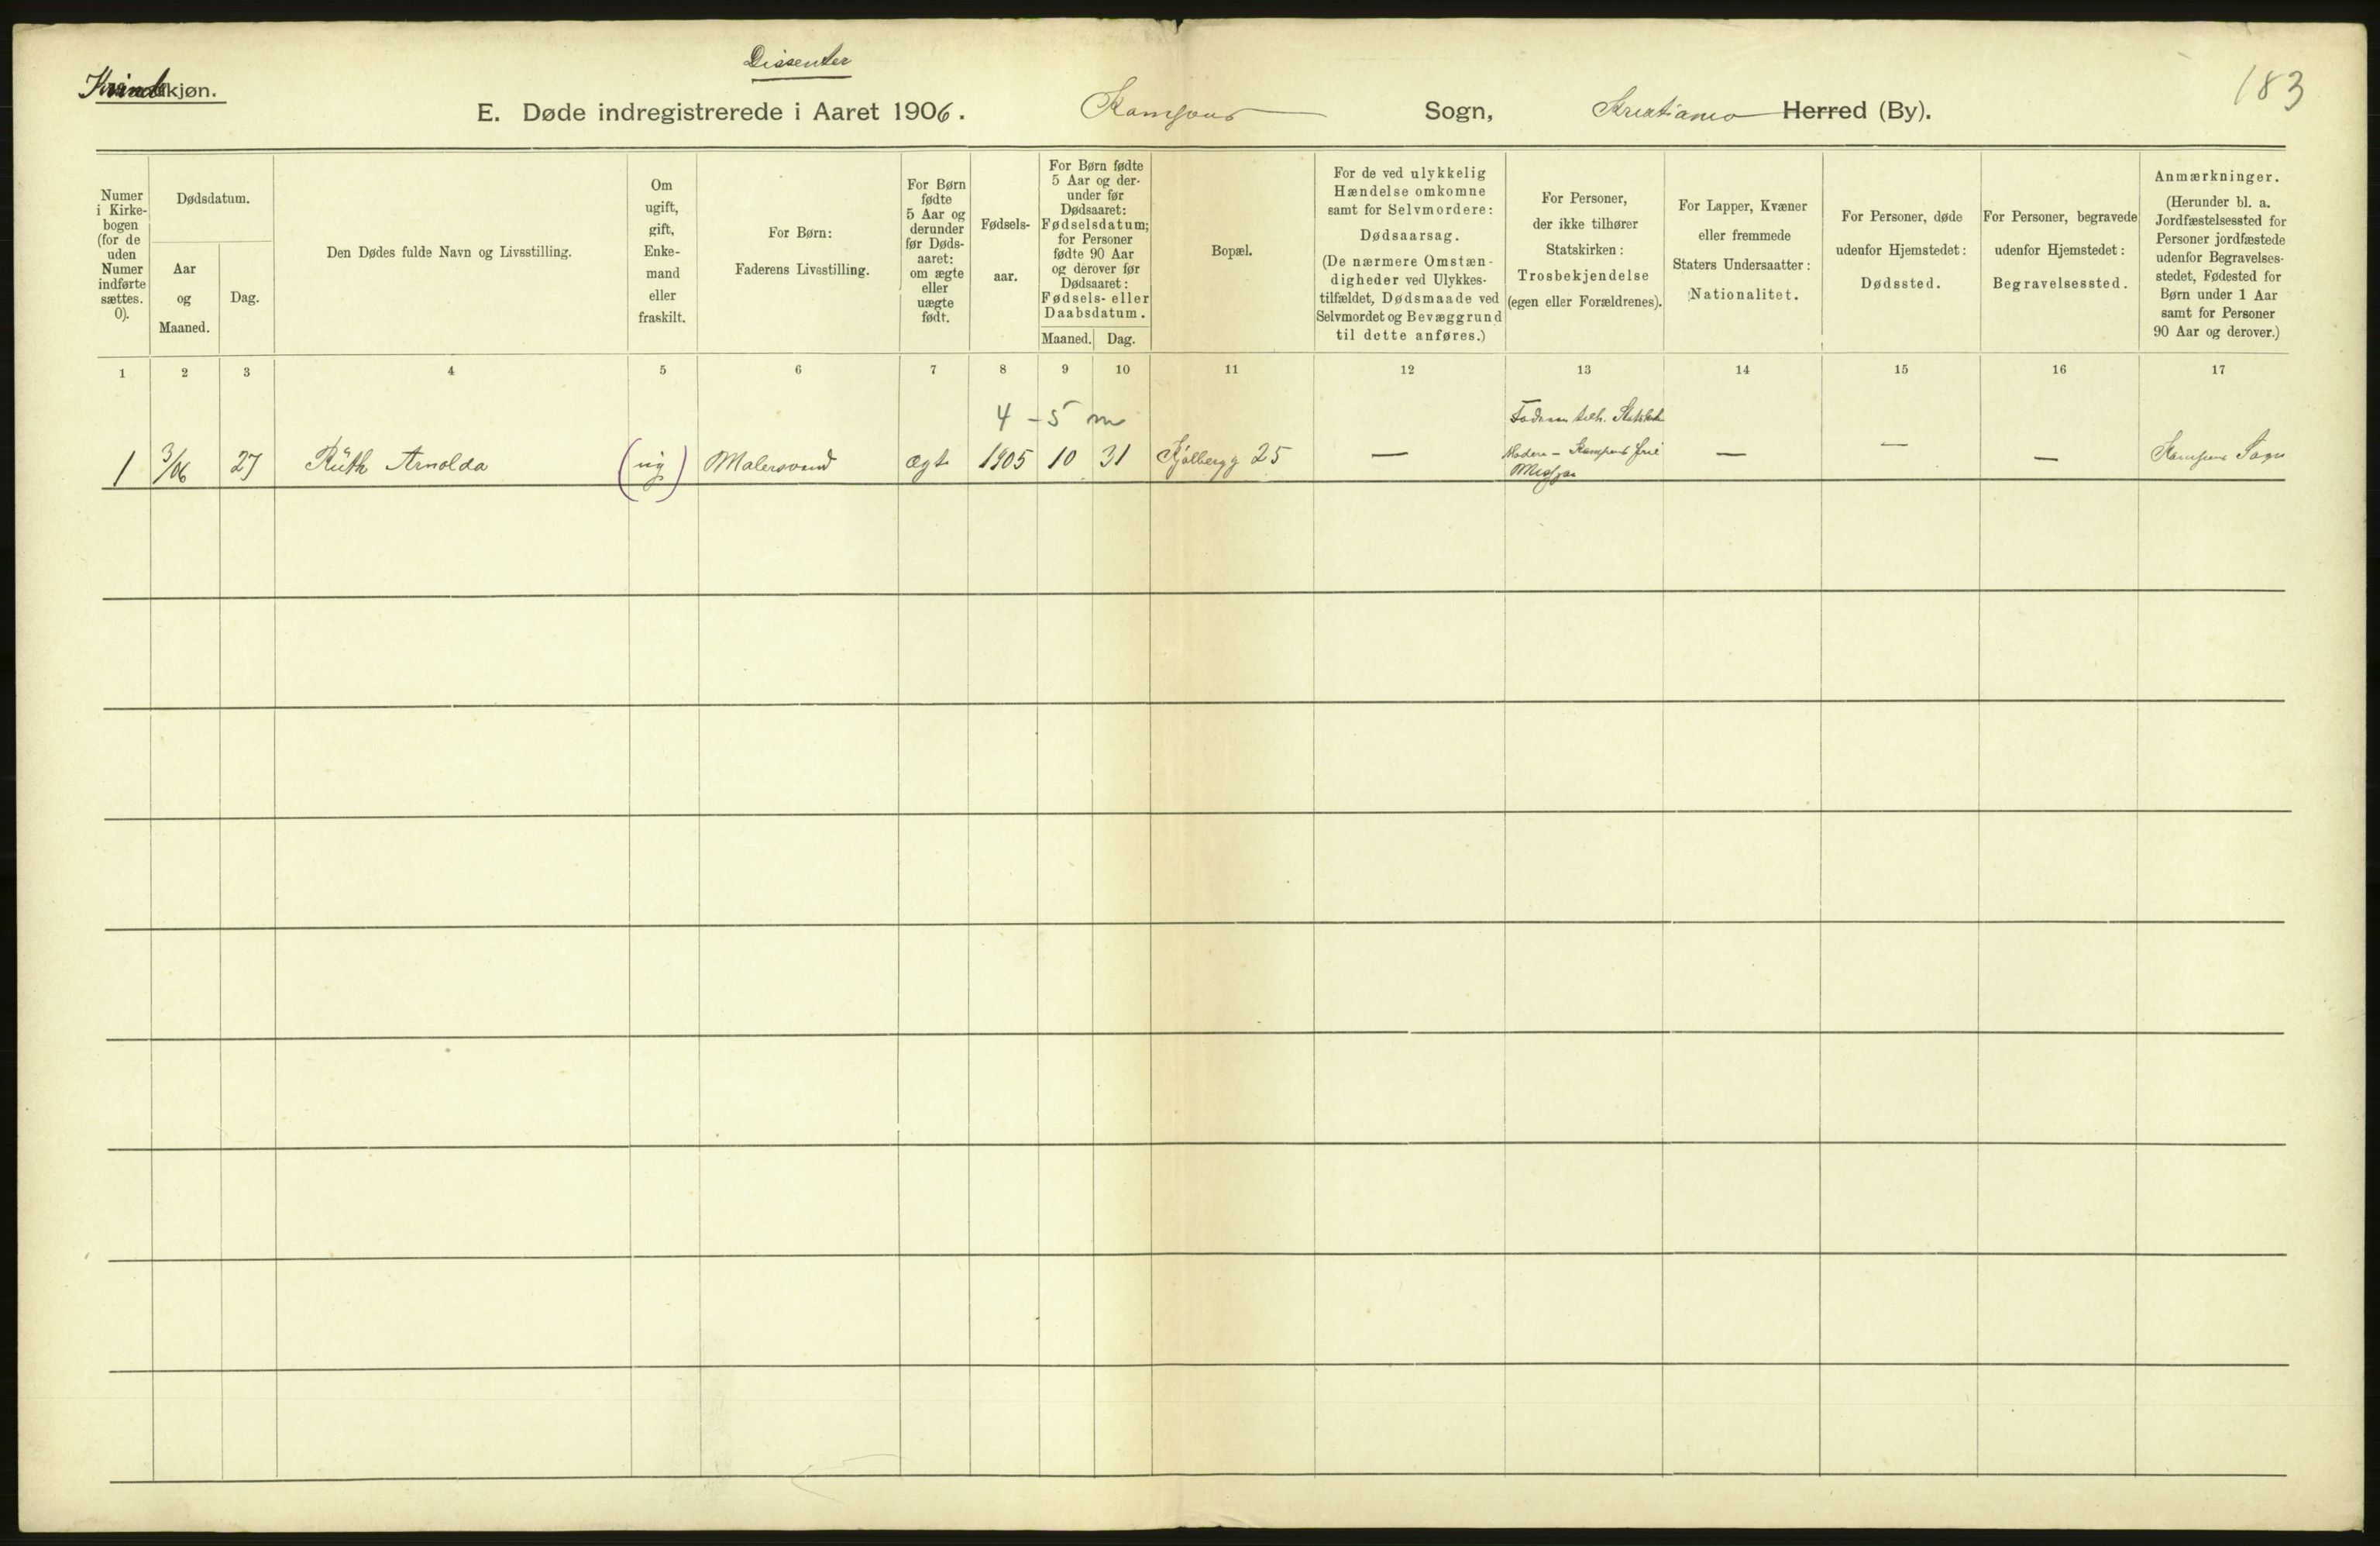 Dissenter
Kvindekjøn.
183
E. Døde indregistrerede i Aaret 1906. Kampens Sogn, Kristiania Herred (By).
Numer
i Kirke-
bogen
(for de
uden
Numer
indførte
sættes.
0).
Dødsdatum.
Aar
og
Maaned.
Dag.
Den Dødes fulde Navn og Livsstilling.
Om
ugift,
gift,
Enke-
mand
eller
fraskilt.
For Børn:
Faderens Livsstilling.
For Børn
fødte
5 Aar og
derunder
før Døds-
aaret:
om ægte
eller
uægte
født.
Fødsels-
aar.
For Børn fødte
5 Aar og der-
under før
Dødsaaret:
Fødselsdatum;
for Personer
fødte 90 Aar
og derover før
Dødsaaret:
Fødsels- eller
Daabsdatum.
Maaned. Dag.
Bopæl.
For de ved ulykkelig
Hændelse omkomne
samt for Selvmordere:
Dødsaarsag.
(De nærmere Omstæn-
digheder ved Ulykkes-
tilfældet, Dødsmaade ved
Selvmordet og Bevæggrund
til dette anføres.)
For Personer,
der ikke tilhører
Statskirken:
Trosbekjendelse
(egen eller Forældrenes).
For Lapper, Kvæner
eller fremmede
Staters Undersaatter:
Nationalitet.
For Personer, døde
udenfor Hjemstedet:
Dødssted.
For Personer, begravede
udenfor Hjemstedet:
Begravelsessted.
Anmærkninger.
(Herunder bl. a.
Jordfæstelsessted for
Personer jordfæstede
udenfor Begravelses-
stedet, Fødested for
Børn under 1 Aar
samt for Personer
90 Aar og derover.)
1 2 3 4 5 6 7 8 9 10 11 12 13 14 15 16 17
4 - 5 m
Faderen tilh. Statskirk
1 3/06 27 Rüth Arnolda (ug) Malersvend ægte 1905 10 31 Kjølbergg 25 — Moderen - Kampens frie — — — Kampens Sogn
Mission